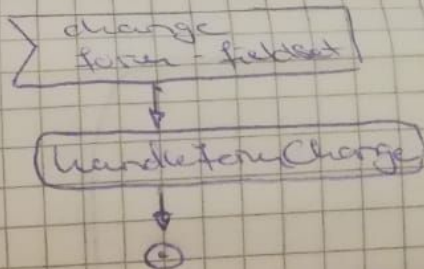 change
form - fieldset
handleFormChange